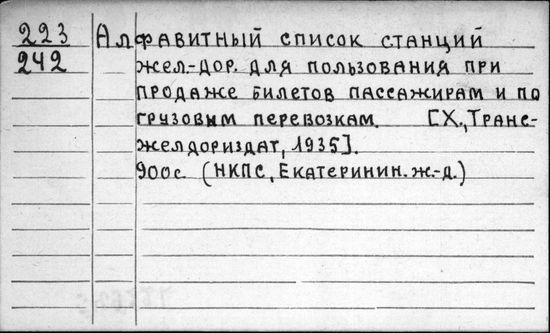 223 Алфавитный список станций
242 жел-дор. для пользования при
продаже билетов пассажирам и по
грузовым перевозкам. [Х., Транс-
желдориздат, 1935].
900с. (НКПС, Екатеринин. ж.-д.)